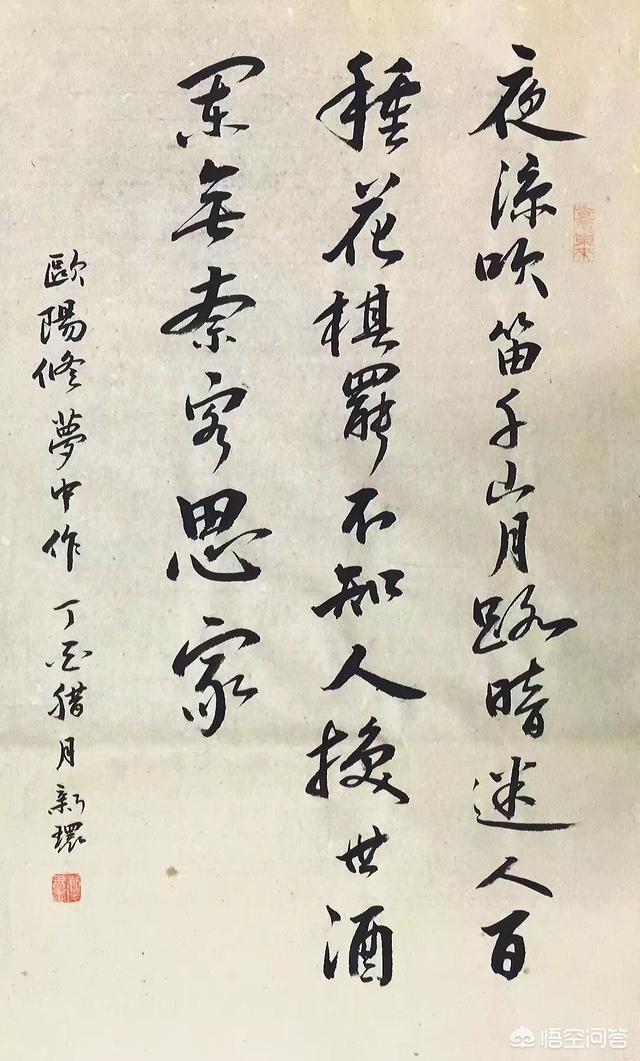 夜涼吹笛千山月路暗迷人百
種花棋罷不知人換世酒
闌無奈客思家
歐陽修夢中作 丁酉腊月新環
悟空问答